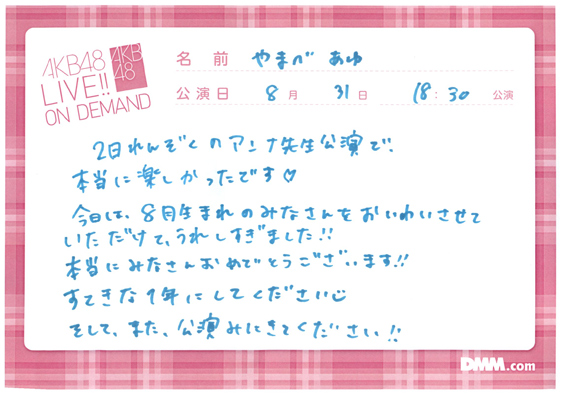 AKB48
LIVE!!
ON DEMAND
AKB
48
名前 やまべ あゆ
公演日 8月 31日 18:30 公演
2日れんぞくのアンナ先生公演で、
本当に楽しかったです♡
今日は、8月生まれのみなさんをおいわいさせて
いただけて、うれしすぎました!!
本当にみなさんおめでとうございます!!
すてきな1年にしてください☺
そして、また、公演みにきてください!!
DMM.com